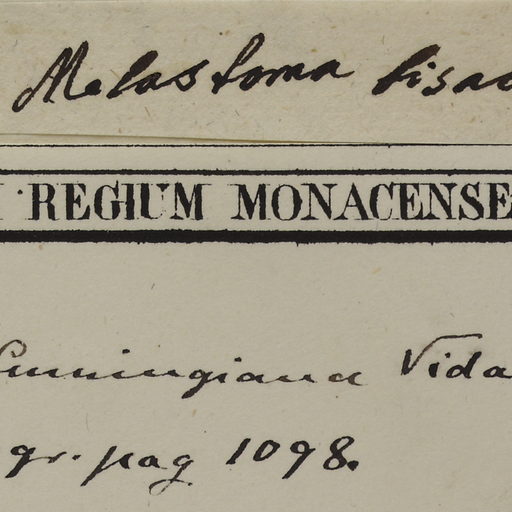 Melastoma bisac
REGIUM MONACENSE
Cumingiana Vida
gr. pag 1098.